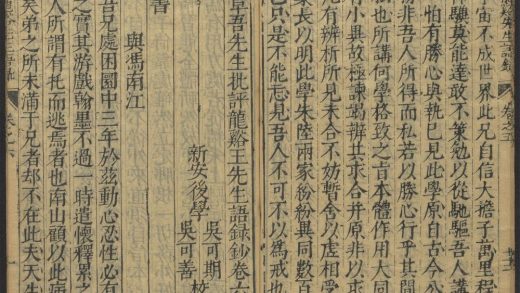 宙不成世界此兄自信大擔子萬里程
驥莫能達敢不策勉以從馳驅吾人講
怕有勝心與執已見此學原自古今公
物非吾人所得而私若以勝心行乎其間
也所講何學格致之旨本體作用大同
小異故極諫竭辯其求合并原非以求
有辨析所見未合不妨暫舍以虛相受
已只是不能忘見吾人不可不以為戒也
家長以明此學朱陸兩家紛紛異同數百
卓吾先生批評龍谿王先生語錄鈔卷六
新安後學
吳可期
吳可善
校
書
與馮南江
吾兄處困圄中三年於茲動心忍性必有
之實其游戲翰墨不過一時遣懷釋累之
人所謂有托而逃焉者也南山顧以此病
矣弟之所未滿于兄者却不在此夫天生